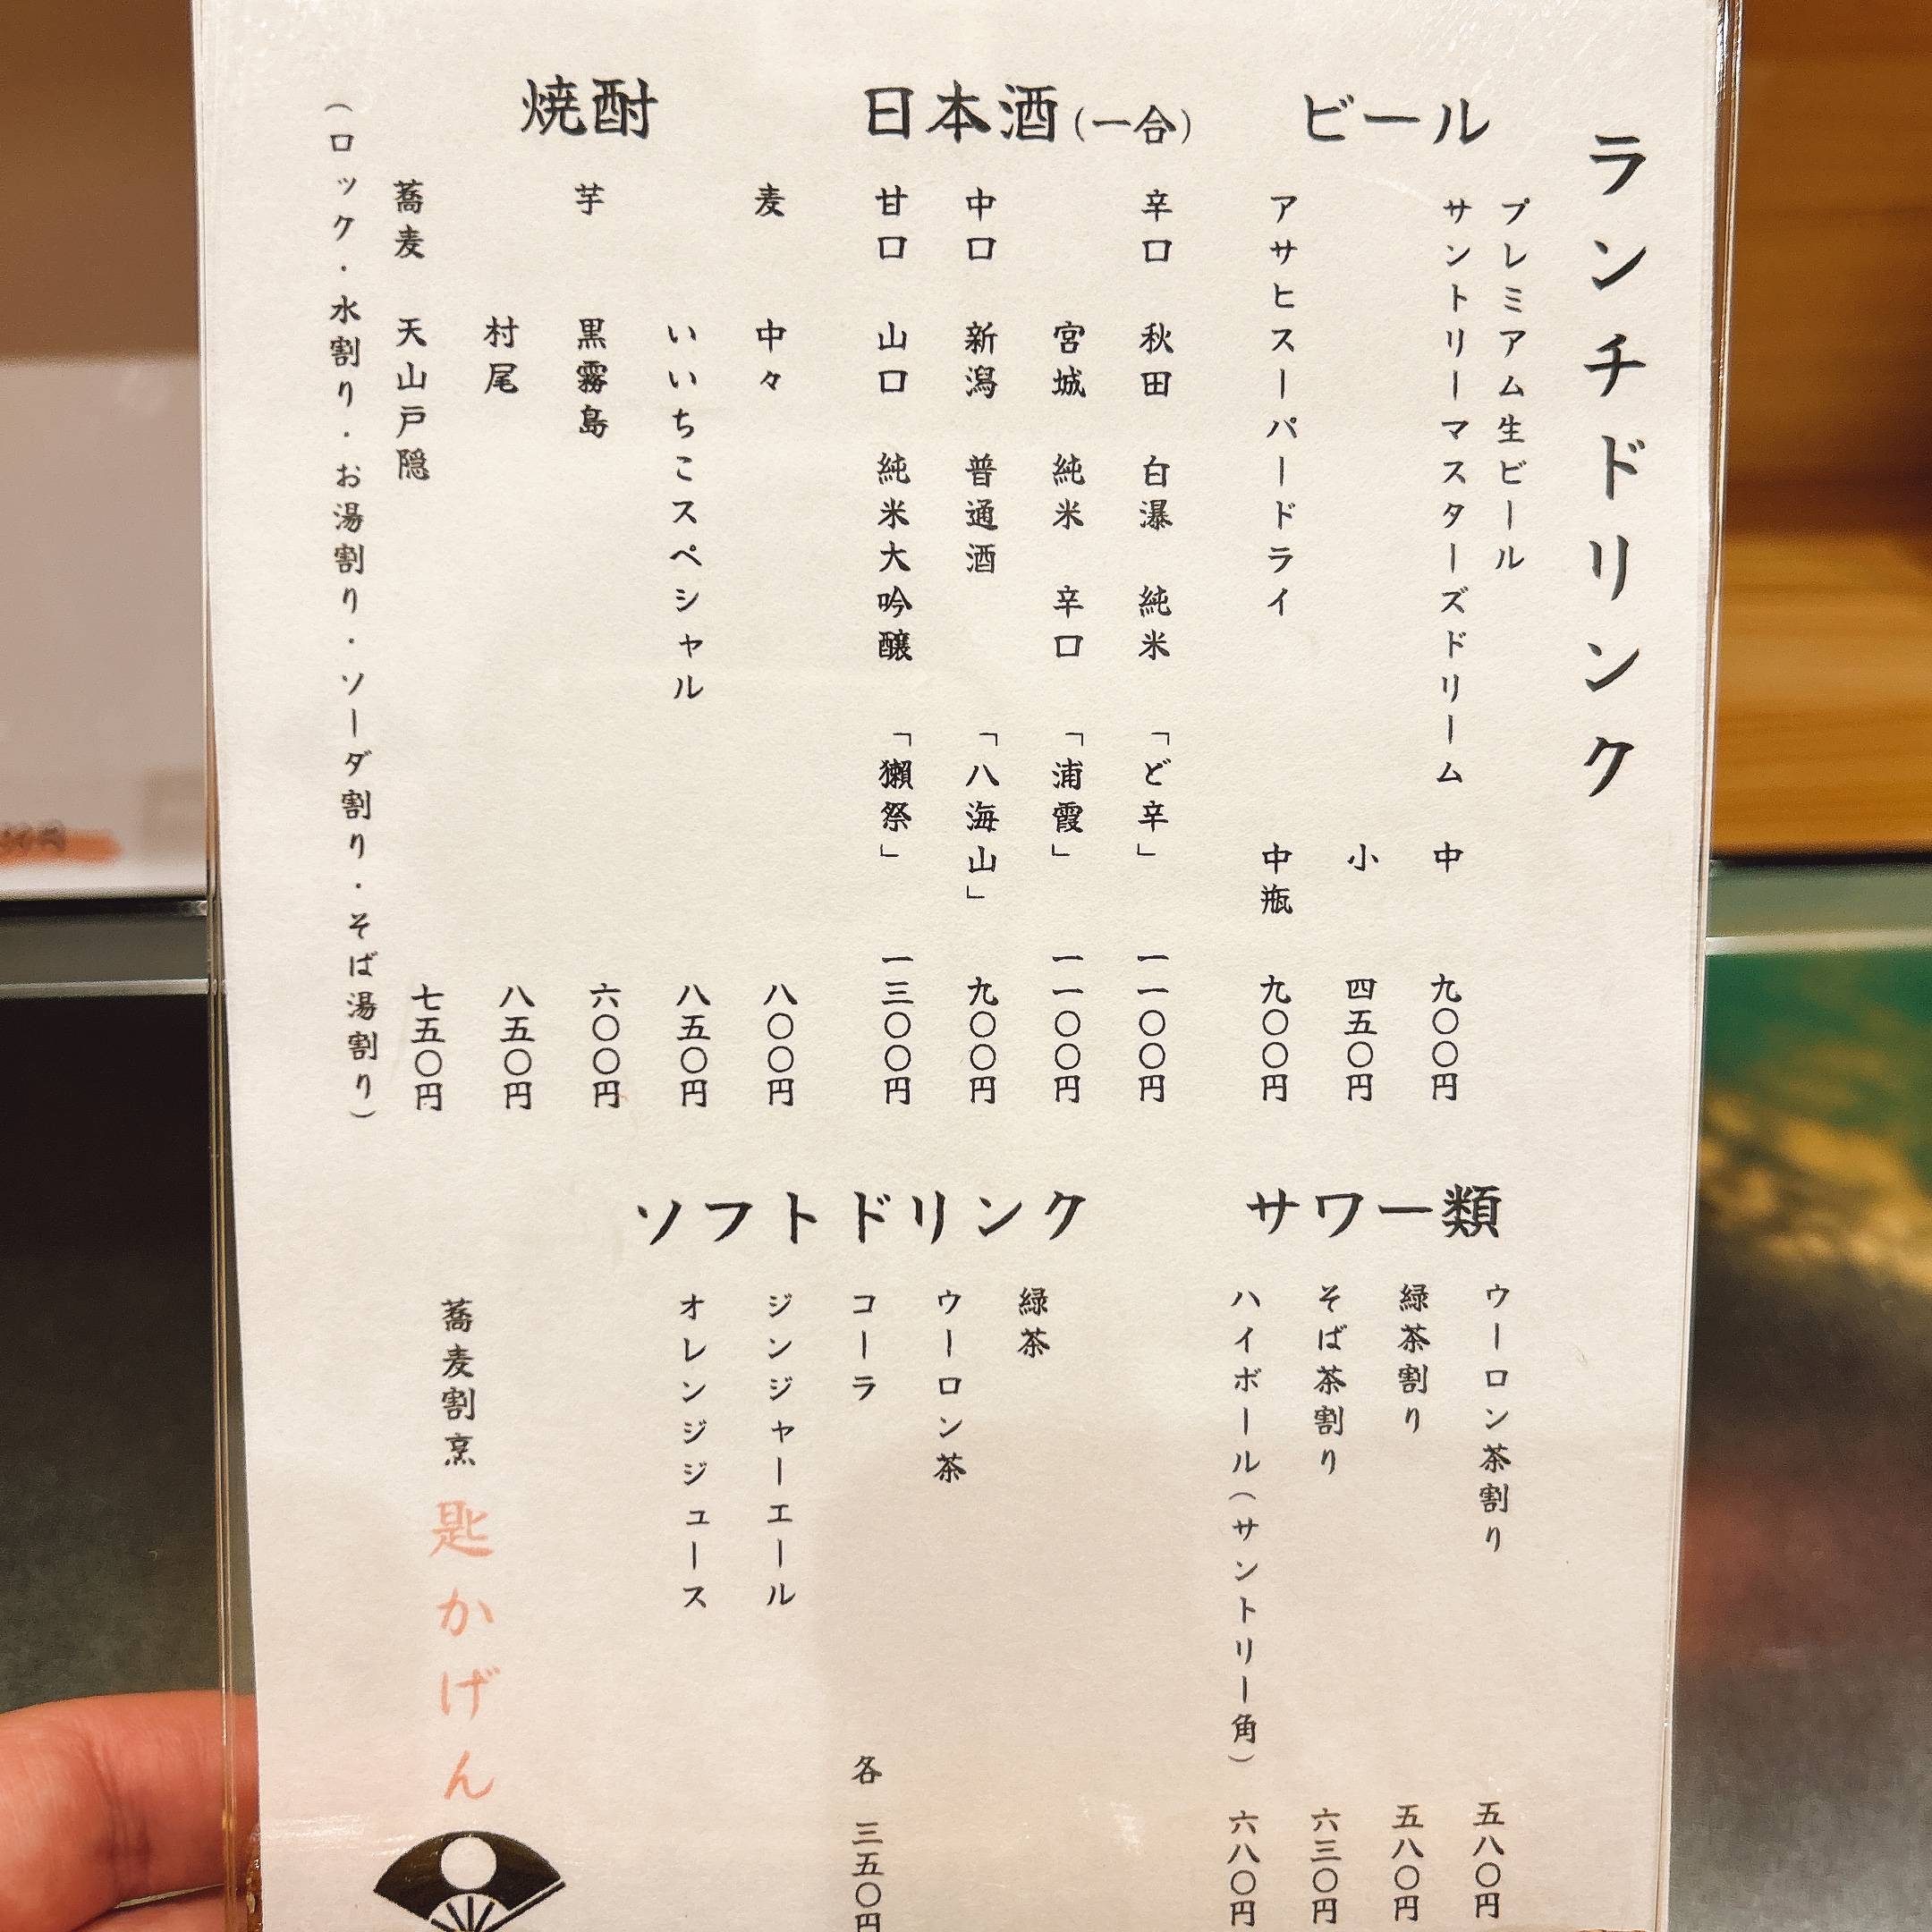 ランチドリンク
ビール
プレミアム生ビール
サントリーマスターズドリーム 中 九〇〇円
小 四五〇円
アサヒスーパードライ 中瓶 九〇〇円
日本酒(一合)
辛口 秋田 白瀑 純米 「ど辛」 一一〇〇円
宮城 純米 辛口 「浦霞」 一一〇〇円
中口 新潟 普通酒 「八海山」 九〇〇円
甘口 山口 純米大吟醸 「獺祭」 一三〇〇円
焼酎
麦 中々 八〇〇円
いいちこスペシャル 八五〇円
芋 黒霧島 六〇〇円
村尾 八五〇円
蕎麦 天山戸隠 七五〇円
(ロック・水割り・お湯割り・ソーダ割り・そば湯割り)
サワー類
ウーロン茶割り 五八〇円
緑茶割り 五八〇円
そば茶割り 六三〇円
ハイボール(サントリー角) 六八〇円
ソフトドリンク
緑茶
ウーロン茶
コーラ
ジンジャーエール
オレンジジュース
各 三五〇円
蕎麦割烹 匙かげん